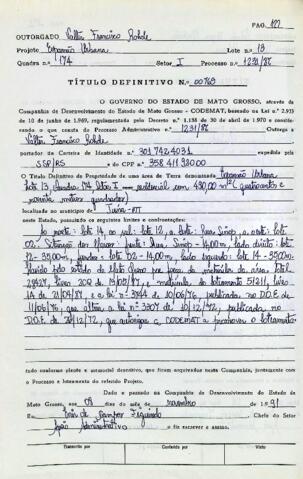 PAG. 127
OUTORGADO Valter Francisco Rohde
Projeto Expansão Urbana Lote n.º 13
Quadra n.º 174 Setor I Processo n.º 1231/86
TÍTULO DEFINITIVO N.º 00763
O GOVERNO DO ESTADO DE MATO GROSSO, através da
Companhia de Desenvolvimento do Estado de Mato Grosso - CODEMAT, baseado na Lei n.º 2.933
de 10 de junho de 1969, regulamentada pelo Decreto n.º 1.138 de 30 de abril de 1970 e conside-
rando o que consta do Processo Administrativo n.º 1231/86 Outorga a
Valter Francisco Rohde
portador da Carteira de Identidade n.º 3017424031 expedida pela
SSP/RS e do CPF n.º 358.411.320.00
O Título Definitivo de Propriedade de uma área de Terra denominada Expansão Urbana
lote 13, Quadra 174 Setor I - residencial com 490,00 m² (quatrocentos e
noventa metros quadrados)
localizado no município de Juína-MT
neste Estado, passando os seguintes limites e confrontações:
Ao norte: lote 14, ao sul: lote 12, a leste: Rua e oeste: lote
02. frente: Rua - 14,00m, lado direito: lote
12 - 35,00m, fundos: lote 02 - 14,00m, lado esquerdo: lote 14 - 35,00m.
Havido pelo estado de Mato Grosso por força da matrícula da área total
livro 2 de matrícula do loteamento 51211, livro
de e a lei nº 3744 de 10/06/76, publicada no D.O.E de
11/06/76, que altera a lei nº 3307 de 18/12/72, publicada no
D.O.E. de /12/72, que autoriza a CODEMAT a promover o loteamento
tudo conforme planta e memorial descritivo, que foram arquivados nesta Companhia, juntamente com
o Processo e loteamento do referido Projeto.
Dado e passado na Companhia de Desenvolvimento do Estado de
Mato Grosso, aos 08 dias do mês de novembro de 1991
Eu de Campos Figueiredo Chefe do Setor
Apoio Administrativo o fiz escrever e assino.
Transcrito por Conferido por Visto